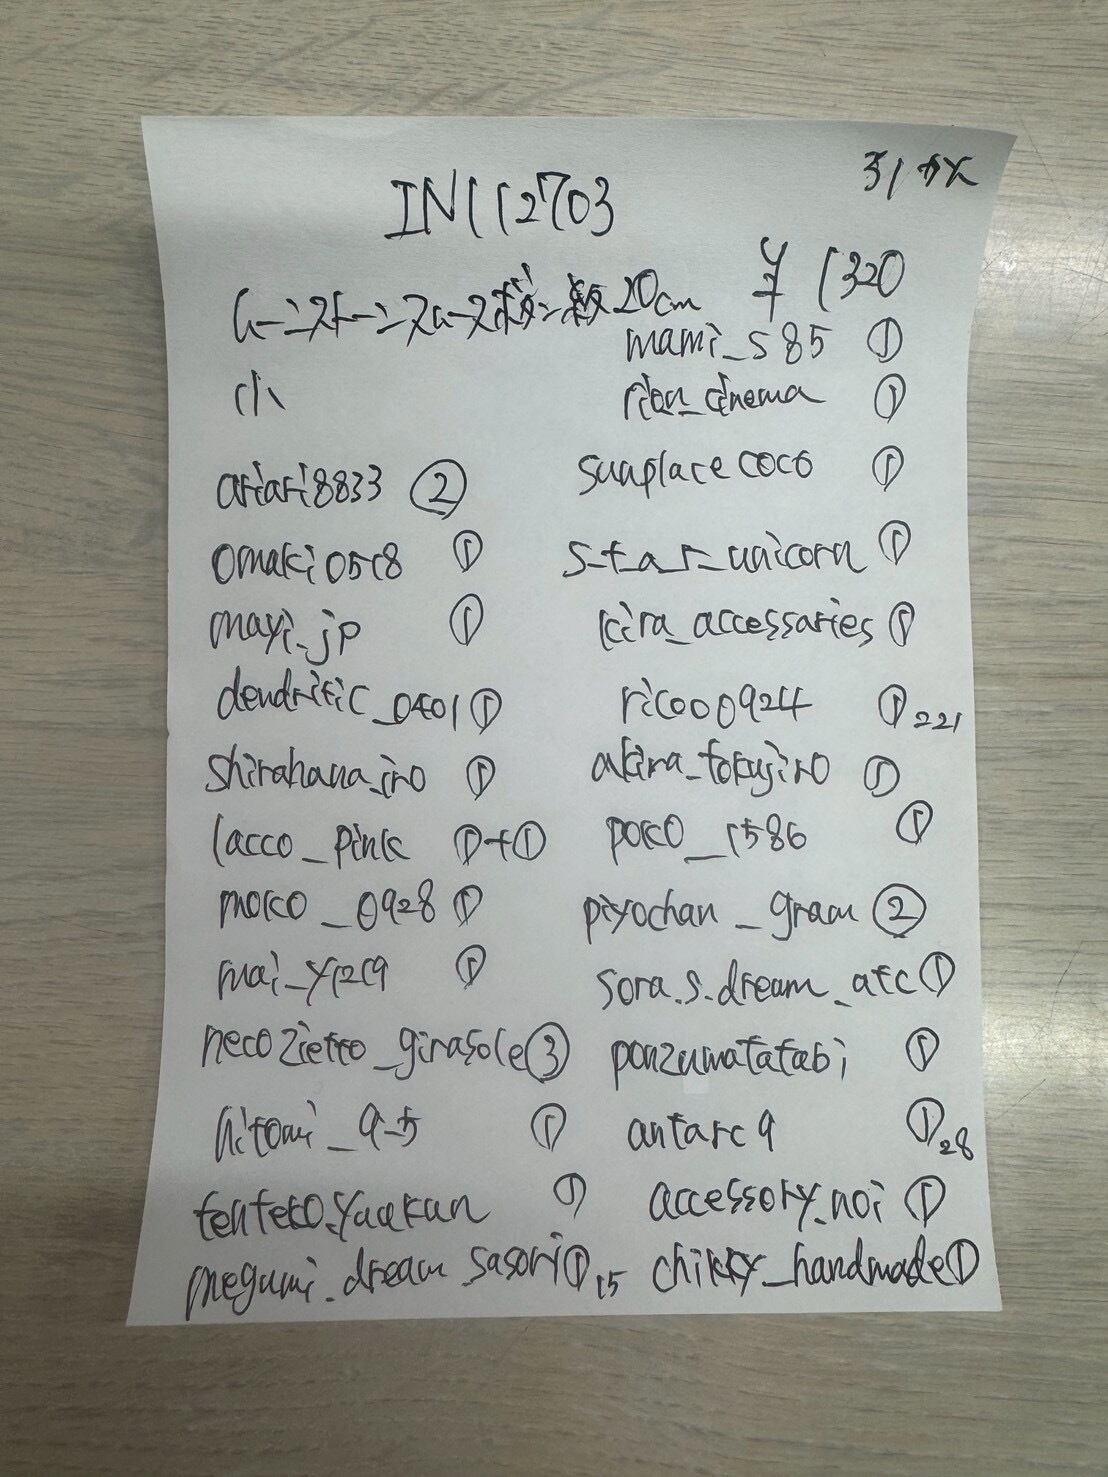 IN112703
31枚
ムーンストーンスムースボタン級20cm
¥1320
小
ariari8833 ②
omaki0518 ①
mayi_jp ①
dendritic_0401 ①
shirahana_iro ①
lacco_pink ①+①
moko_0928 ①
mai_y1219 ①
necozietto_girasole ③
hitomi_9_5 ①
tenteko.yaakun ①
megumi.dream_sasori ① 15
mami_s85 ①
rion_cinema ①
sunplacecoco ①
s_t_a_r_unicorn ①
kira_accessaries ①
ricooo0924 ① 221
akira_tokujiro ①
poko_1586 ①
piyochan_gram ②
sora.s.dream_atc ①
ponzumatatabi ①
antarc9 ① 28
accessory_noi ①
chikky_handmade ①